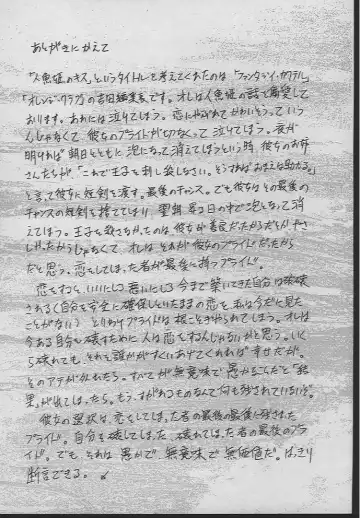 あとがきにかえて
「人魚姫のキス」というタイトルを考えてくれたのは「ファンタジィ・カクテル」
「オレンジ・クラブ」の吉田編集長です。オレは人魚姫の話を偏愛して
おります。あれには泣けてしまう。恋にやぶれてかわいそうっていう
んじゃなくて、彼女のプライドが切なくって泣けてしまう。夜が
明ければ朝日とともに泡になって消えてしまうという時、彼女のお姉
さんたちが、「これで王子を刺し殺しなさい。そうすればおまえは助かる」
と言って彼女に短剣を渡す。最後のチャンス。でも彼女はその最後の
チャンスの短剣を捨ててしまい 翌朝 昇る日の中で泡となって消
えてしまう。王子を殺さなかったのは、彼女が善良だったからだとかやさ
しかったからじゃなくて オレは それが彼女のプライドだったから
だと思う。恋をしてしまった者が最後に持つプライド。
恋をすると いいにしろ 悪いにしろ 今まで築いてきた自分は破壊
される(自分を安全に確保しといたままの恋を 私は今だに見た
ことがない) とりわけプライドは根こそぎやられてしまう。オレは
今ある自分を壊すために人は恋をするんじゃないかと思う。いく
ら破れても、それを誰かがすくいあげてくれれば幸せだが、
そのアテが外れたら。すべてが無意味で愚かなことだと「結
果」が出てしまったら。もう、すがれるものなんて何も残されていない。
彼女の選択は、恋をしてしまった者の最後の最後に残された
プライド。自分を壊してしまった、破れてしまった者の最後のプラ
イド。でも、それは 愚かで 無意味で 無価値だ。はっきり
断言できる。